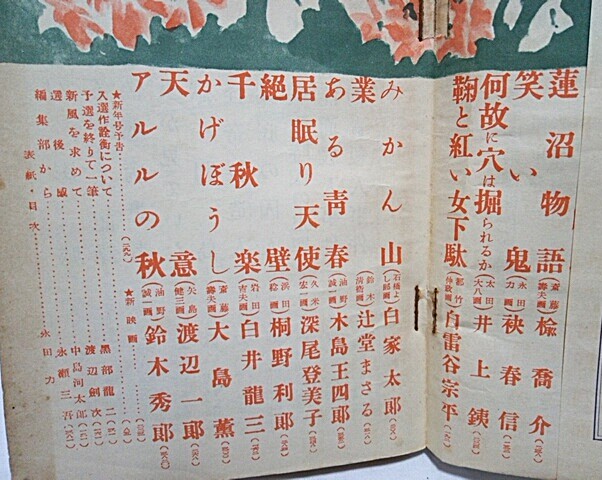 蓮沼物語 (斎藤壽夫画) 楡喬介
笑い鬼 (永田力画) 袂春信
何故に穴は掘られるか (太田大八画) 井上銕
鞠と紅い女下駄 自雷谷宗平
みかん山 (石橋よし郎画) 白家太郎
業 (鈴木清衛画) 辻堂まさる
ある青春 (油野誠一画) 木島王四郎
居眠り天使 (久米宏一画) 深尾登美子
絶壁 (浜田稔画) 桐野利郎
千秋楽 (岩田吉夫画) 白井龍三
かげぼうし (斎藤壽夫画) 大島薫
天意 (矢島健三画) 渡辺一郎
アルルの秋 (油野誠一画) 鈴木秀郎
★新年号予告 ★新映画
入選作詮衡について 黒部龍二
予選を終りて一筆 渡辺剣次
新風を求めて 中島河太郎
選後感 永瀬三吾
編集部から
表紙・目次 永田力